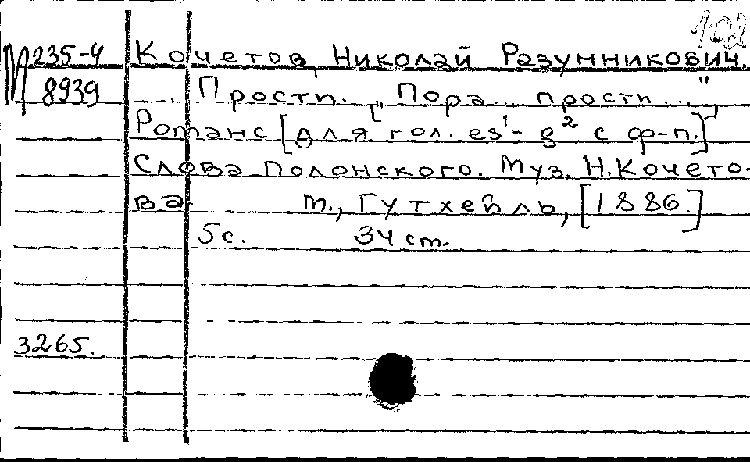 М 235-4 Кочетов, Николай Разумникович.
8939 Прости. ["Пора... прости..."]
Романс [для гол. es¹-g² с ф-п.]
Слова Полонского. Муз. Н. Кочето-
ва. М., Гутхейль, [1886.]
5 с. 34 см.
3265.